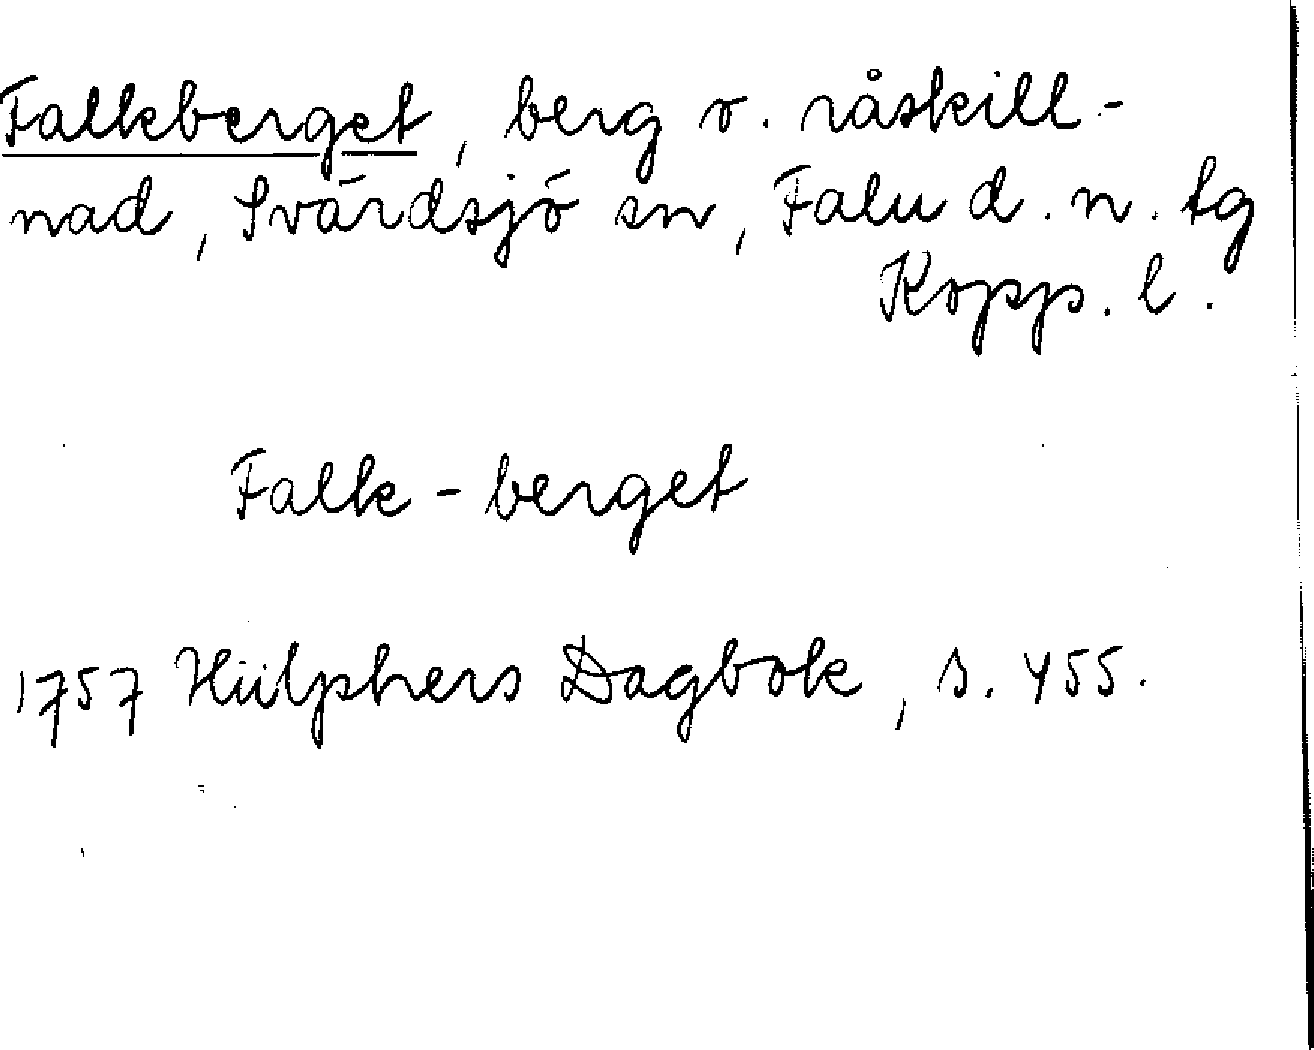 Falkberget, berg o. råskill-
nad, Svärdsjö sn, Falu d. n. tg
Kopp. l.
Falk-berget
1757 Hülphers Dagbok, s. 455.